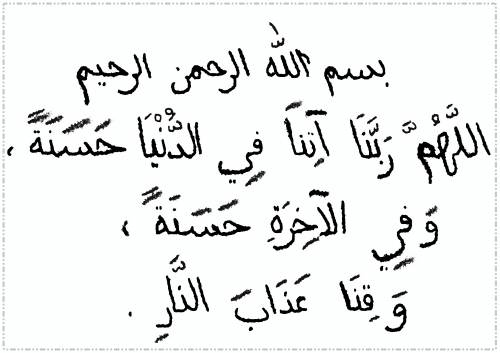 بسم الله الرحمن الرحيم
اللَّهُمَّ رَبَّنَا آتِنَا فِي الدُّنْيَا حَسَنَةً ،
وَفِي الْآخِرَةِ حَسَنَةً ،
وَقِنَا عَذَابَ النَّارِ .